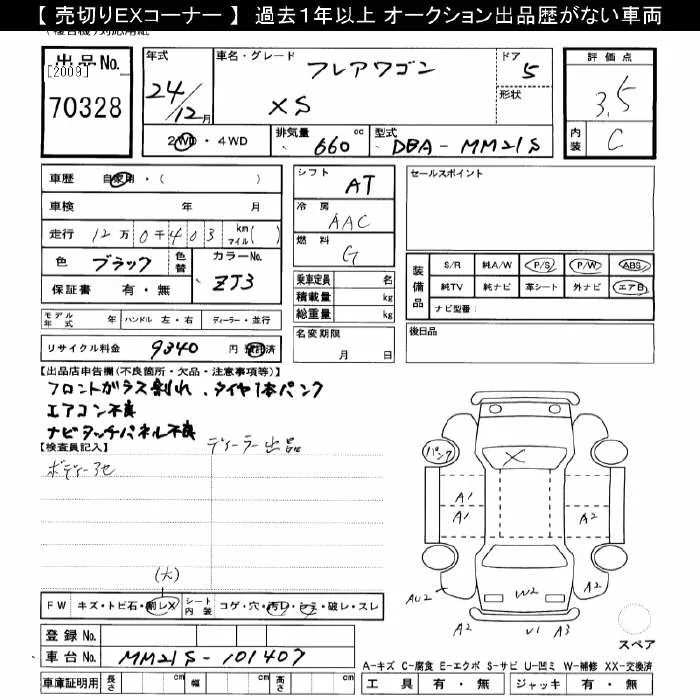 【 売切りEXコーナー 】 過去1年以上 オークション出品歴がない車両
出品No.
[2009]
70328
年式
24/12月
車名・グレード
フレアワゴン
XS
ドア
5
形状
評価点
3.5
内装
C
2WD・4WD
排気量
660 cc
型式
DBA-MM21S
車歴 自家用・( )
車検 年 月
走行 12万0千403 km マイル( )
色 ブラック 色替
カラーNo. ZJ3
保証書 有・無
シフト AT
冷房 AAC
燃料 G
乗車定員 名
積載量 kg
総重量 kg
セールスポイント
装備品
S/R 純A/W P/S P/W ABS
純TV 純ナビ 革シート 外ナビ エアB
ナビ型番:
モデル年式 年 ハンドル 左・右 ディーラー・並行
名変期限
月 日
後日品
リサイクル料金 9340 円 預託済
【出品店申告欄(不良箇所・欠品・注意事項等)】
フロントガラス割れ、タイヤ1本パンク
エアコン不良
ナビタッチパネル不良
【検査員記入】
ディーラー出品
ボディー3セ
(大)
FW キズ・トビ石・割レX
シート内装 コゲ・穴・汚レ・シミ・破レ・スレ
登録No.
車台No. MM21S-101407
車庫証明用 長さ cm 幅 cm 高さ cm
パンク
X
A1
A1
A2
AU2
W2
A2
A2
U1
A3
スペア
A-キズ C-腐食 E-エクボ S-サビ U-凹ミ W-補修 XX-交換済
工具 有・無 ジャッキ 有・無